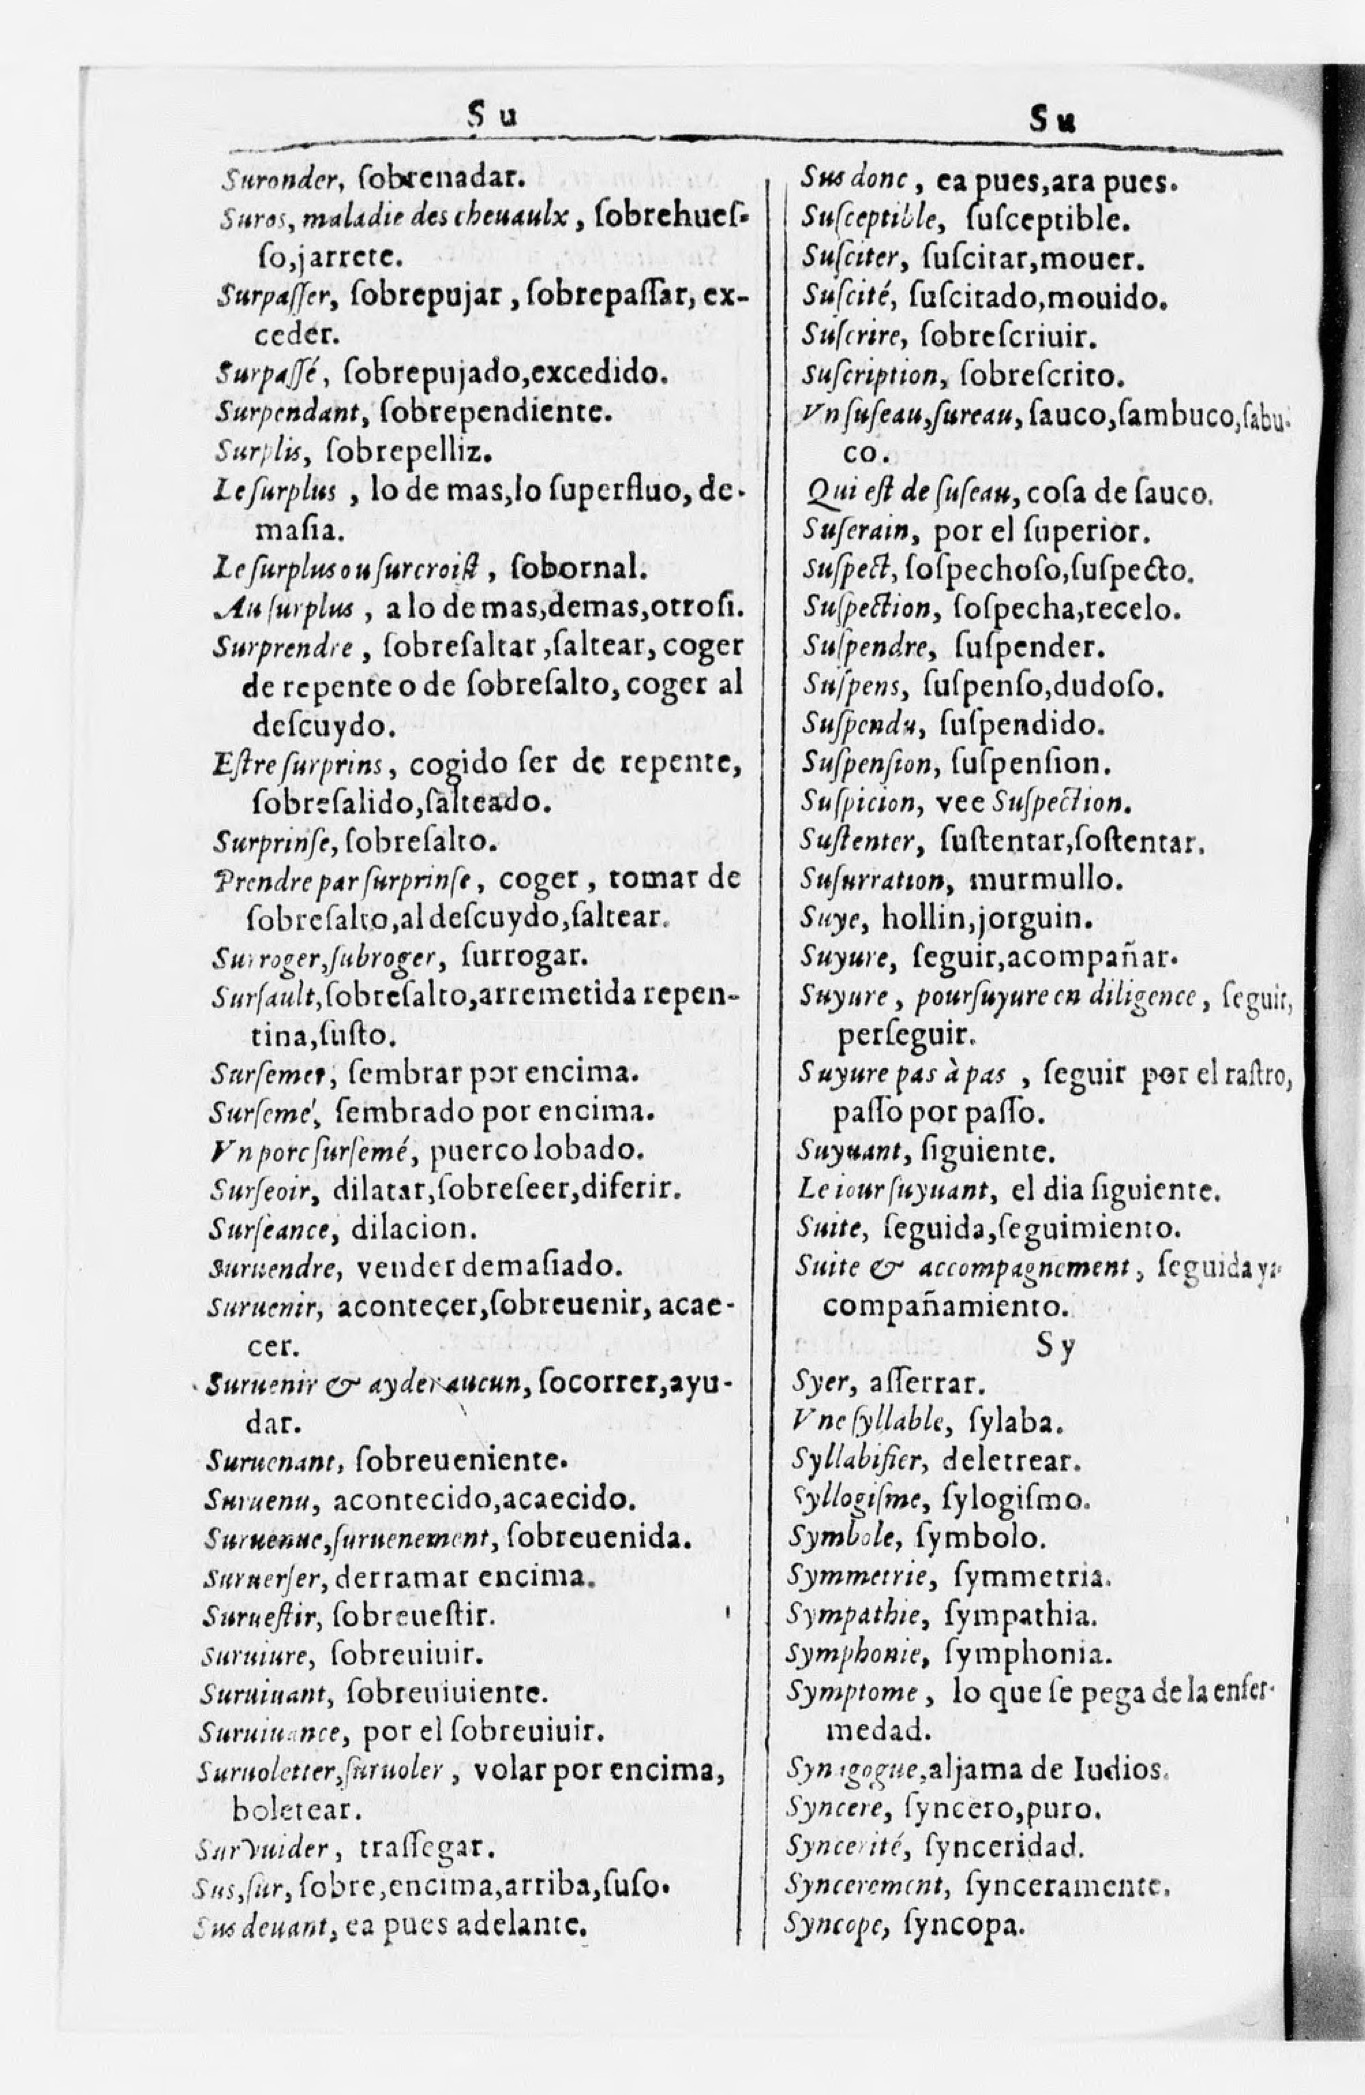 Su
Suronder, ſobrenadar.
Suros, maladie des cheuaulx, ſobrehueſ-
ſo,jarrete.
Surpaſſer, ſobrepujar, ſobrepaſſar, ex-
ceder.
Surpaſſé, ſobrepujado,excedido.
Surpendant, ſobrependiente.
Surplis, ſobrepelliz.
Le ſurplus, lo de mas,lo ſuperfluo, de-
maſia.
Le ſurplus ou ſurcroiſt, ſobornal.
Au ſurplus, a lo de mas,demas,otroſi.
Surprendre, ſobreſaltar,ſaltear, coger
de repente o de ſobreſalto, coger al
deſcuydo.
Eſtre ſurprins, cogido ſer de repente,
ſobreſalido,ſalteado.
Surprinſe, ſobreſalto.
Prendre par ſurprinſe, coger, tomar de
ſobreſalto,al deſcuydo,ſaltear.
Surroger,ſubroger, ſurrogar.
Surſault,ſobreſalto,arremetida repen-
tina,ſuſto.
Surſemer, ſembrar por encima.
Surſemé, ſembrado por encima.
Vn porc ſurſemé, puerco lobado.
Surſeoir, dilatar,ſobreſeer,diferir.
Surſeance, dilacion.
Suruendre, vender demaſiado.
Suruenir, aconteçer,ſobreuenir, acae-
cer.
Suruenir & ayder aucun, ſocorrer,ayu-
dar.
Suruenant, ſobreueniente.
Suruenu, acontecido,acaecido.
Suruenue,ſuruenement, ſobreuenida.
Suruerſer, derramar encima.
Surueſtir, ſobreueſtir.
Suruiure, ſobreuiuir.
Suruiuant, ſobreuiuiente.
Suruiuance, por el ſobreuiuir.
Suruoletter,ſuruoler, volar por encima,
boletear.
Survuider, traſſegar.
Sus,ſur, ſobre,encima,arriba,ſuſo.
Sus deuant, ea pues adelante.
Su
Sus donc, ea pues,ara pues.
Suſceptible, ſuſceptible.
Suſciter, ſuſcitar,mouer.
Suſcité, ſuſcitado,mouido.
Suſcrire, ſobreſcriuir.
Suſcription, ſobreſcrito.
Vn ſuſeau,ſureau, ſauco,ſambuco,ſabu-
co.
Qui eſt de ſuſeau, coſa de ſauco.
Suſerain, por el ſuperior.
Suſpect, ſoſpechoſo,ſuſpecto.
Suſpection, ſoſpecha,recelo.
Suſpendre, ſuſpender.
Suſpens, ſuſpenſo,dudoſo.
Suſpendu, ſuſpendido.
Suſpenſion, ſuſpenſion.
Suſpicion, vee Suſpection.
Suſtenter, ſuſtentar,ſoſtentar.
Suſurration, murmullo.
Suye, hollin,jorguin.
Suyure, ſeguir,acompañar.
Suyure, pourſuyure en diligence, ſeguir,
perſeguir.
Suyure pas à pas, ſeguir por el raſtro,
paſſo por paſſo.
Suyuant, ſiguiente.
Le iour ſuyuant, el dia ſiguiente.
Suite, ſeguida,ſeguimiento.
Suite & accompagnement, ſeguida y
compañamiento.
Sy
Syer, aſſerrar.
Vne ſyllable, ſylaba.
Syllabifier, deletrear.
Syllogiſme, ſylogiſmo.
Symbole, ſymbolo.
Symmetrie, ſymmetria.
Sympathie, ſympathia.
Symphonie, ſymphonia.
Symptome, lo que ſe pega de la enfer-
medad.
Synagogue,aljama de Iudios.
Syncere, ſyncero,puro.
Syncerité, ſynceridad.
Syncerement, ſynceramente.
Syncope, ſyncopa.